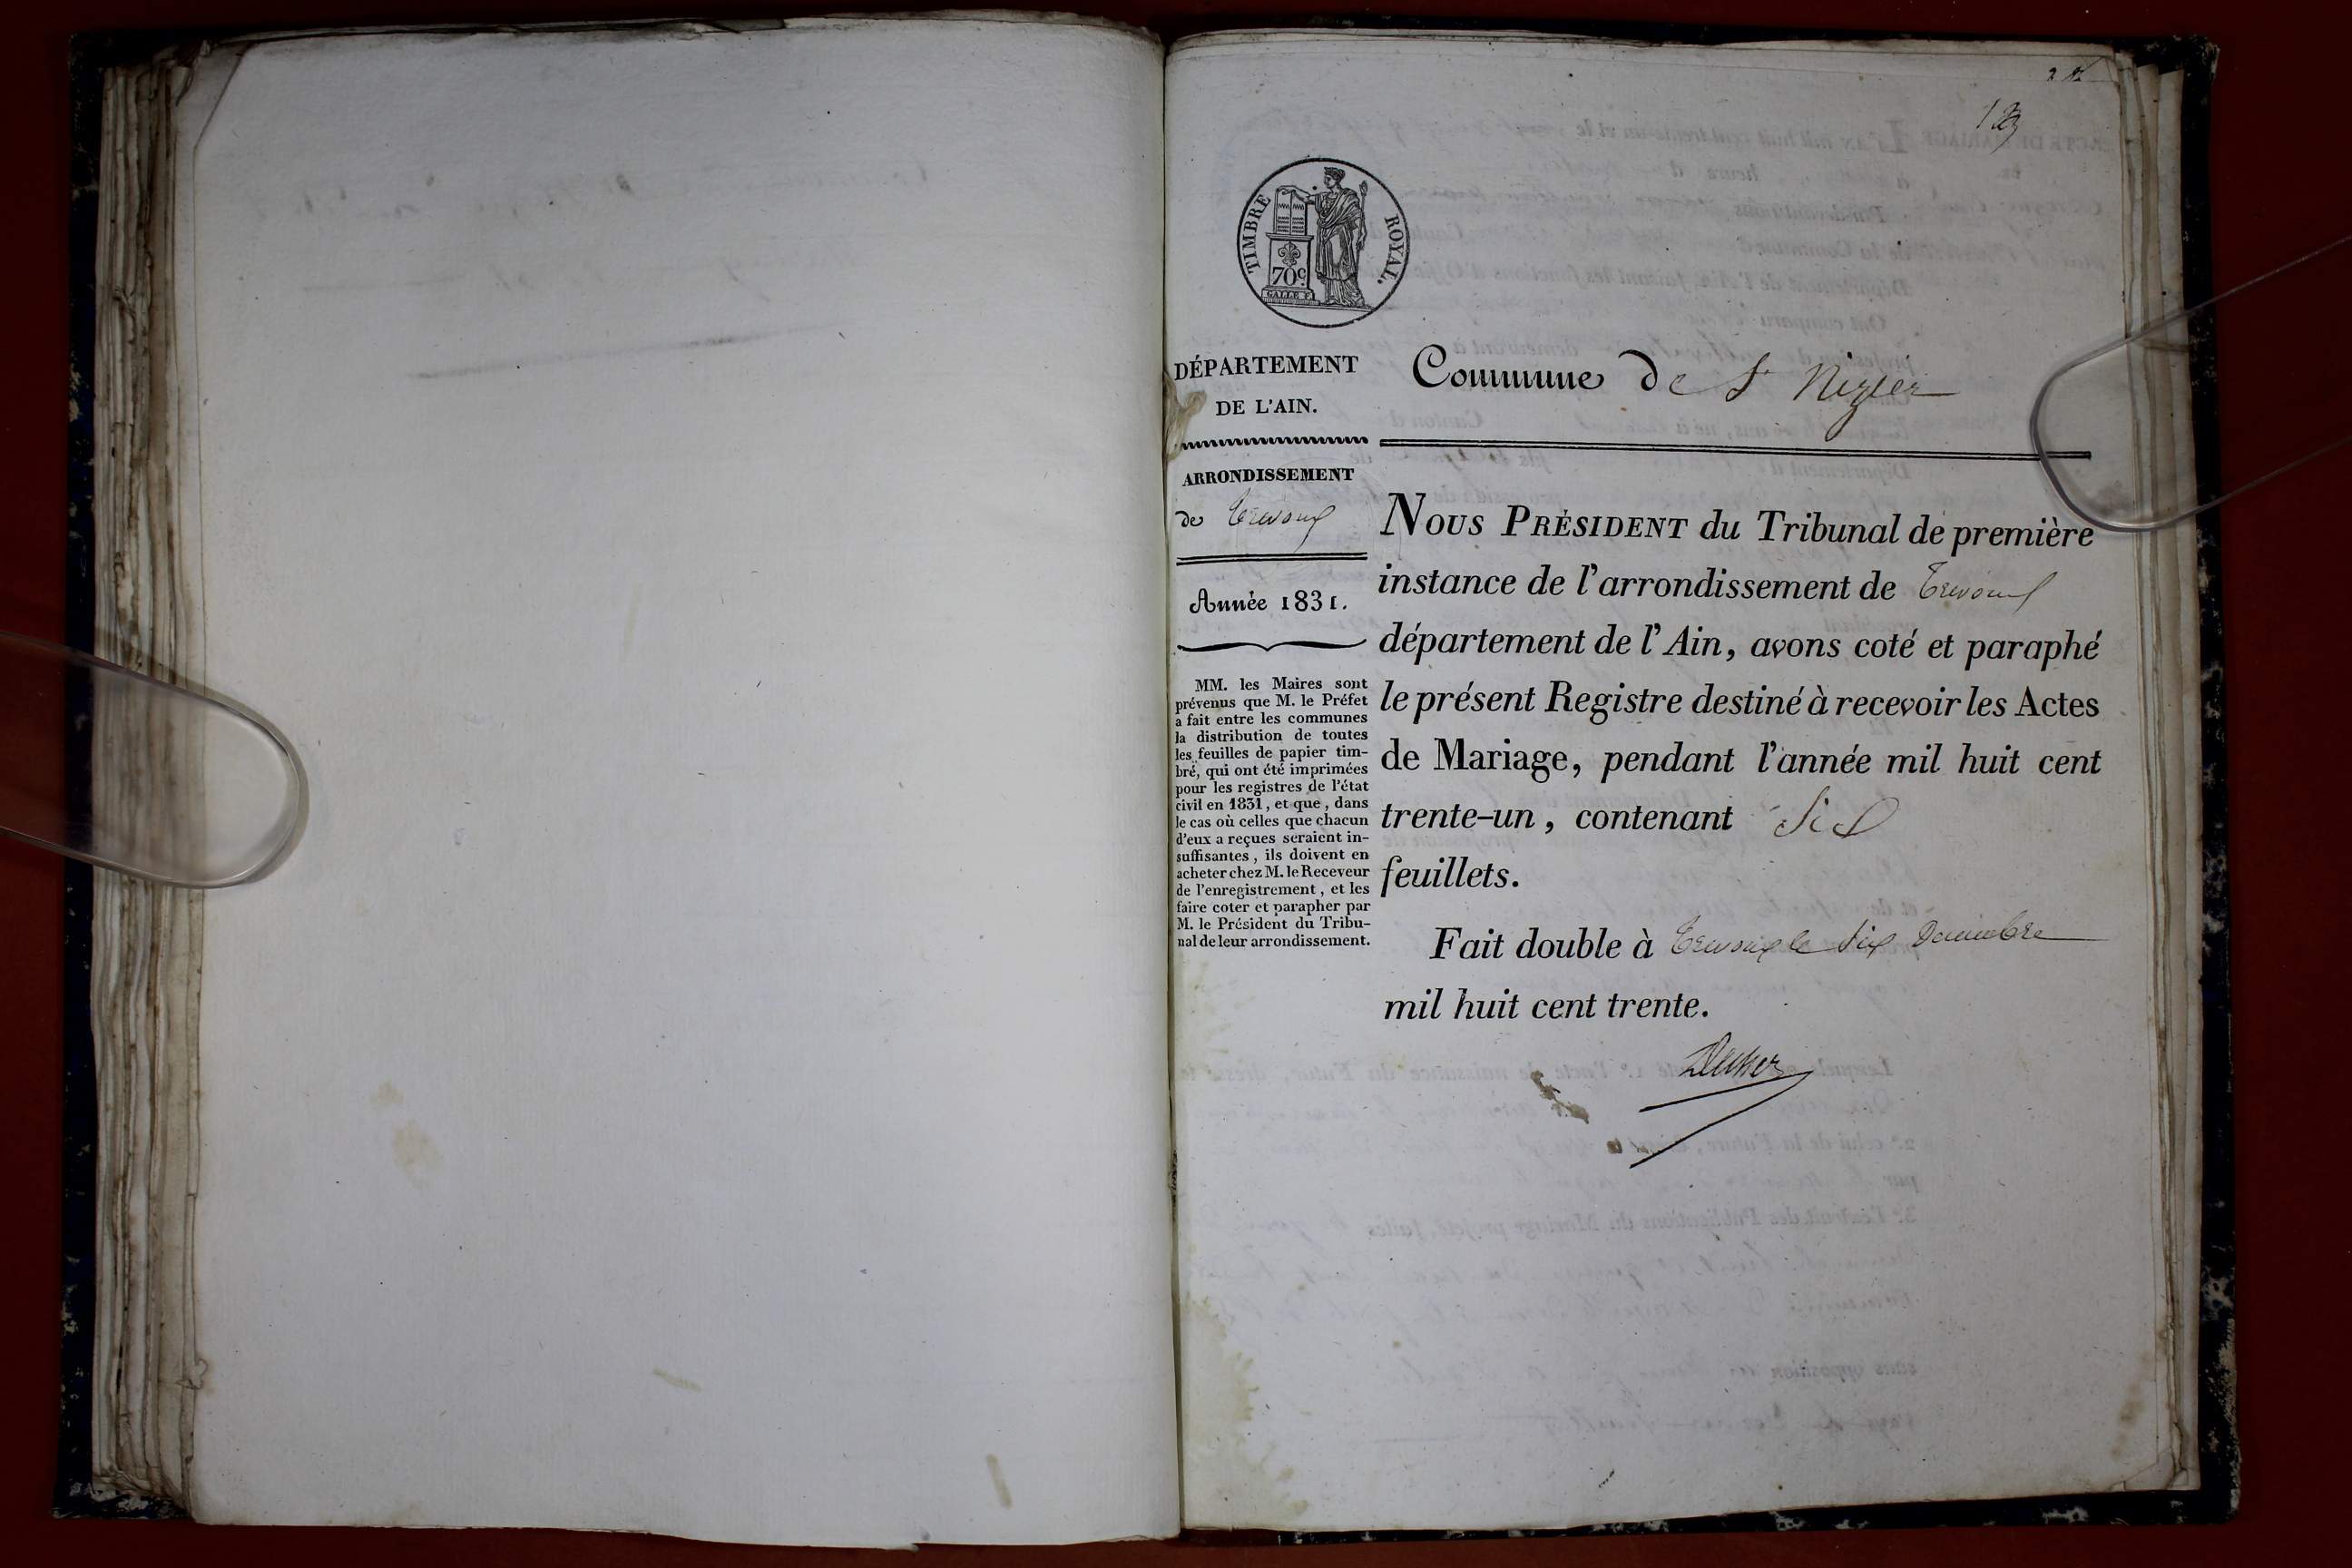 TIMBRE ROYAL.
70 c.
DÉPARTEMENT
DE L'AIN.
ARRONDISSEMENT
de Trevoux
Année 1831.
MM. les Maires sont
prévenus que M. le Préfet
a fait entre les communes
la distribution de toutes
les feuilles de papier tim-
bré, qui ont été imprimées
pour les registres de l'état
civil en 1831, et que, dans
le cas où celles que chacun
d'eux a reçues seraient in-
suffisantes, ils doivent en
acheter chez M. le Receveur
de l'enregistrement, et les
faire coter et parapher par
M. le Président du Tribu-
nal de leur arrondissement.
Commune de St Nizier
NOUS PRÉSIDENT du Tribunal de première
instance de l'arrondissement de Trevoux
département de l'Ain, avons coté et paraphé
le présent Registre destiné à recevoir les Actes
de Mariage, pendant l'année mil huit cent
trente-un, contenant Six
feuillets.
Fait double à Trevoux le Six Decembre
mil huit cent trente.